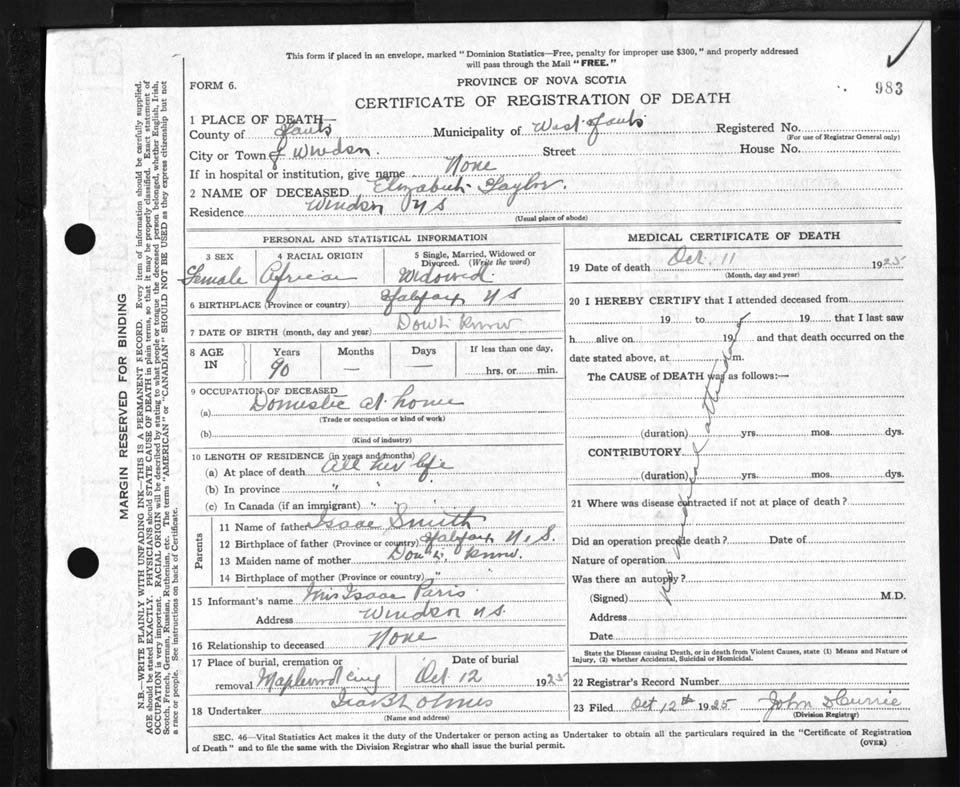 This form if placed in an envelope, marked "Dominion Statistics—Free, penalty for improper use $300," and properly addressed
will pass through the Mail "FREE."
983
FORM 6.
PROVINCE OF NOVA SCOTIA
CERTIFICATE OF REGISTRATION OF DEATH
1 PLACE OF DEATH—
County of Hants Municipality of West Hants Registered No.
(For use of Registrar General only)
City or Town of Windsor. Street House No.
If in hospital or institution, give name None
2 NAME OF DECEASED Elizabeth Taylor.
Residence Windsor N S
(Usual place of abode)
PERSONAL AND STATISTICAL INFORMATION
3 SEX 4 RACIAL ORIGIN 5 Single, Married, Widowed or
Divorced. (Write the word)
Female African Widowed
6 BIRTHPLACE (Province or country) Halifax N S
7 DATE OF BIRTH (month, day and year) Don't know
8 AGE IN Years Months Days If less than one day,
90 — — hrs. or min.
9 OCCUPATION OF DECEASED
(a) Domestic at home
(Trade or occupation or kind of work)
(b)
(Kind of industry)
10 LENGTH OF RESIDENCE (in years and months)
(a) At place of death All her life
(b) In province " "
(c) In Canada (if an immigrant) " "
Parents
11 Name of father Isaac Smith
12 Birthplace of father (Province or country) Halifax N. S.
13 Maiden name of mother Don't know.
14 Birthplace of mother (Province or country) " "
15 Informant's name Mrs Isaac Paris
Address Windsor N S.
16 Relationship to deceased None
17 Place of burial, cremation or Date of burial
removal Maplewood Oct 12 1925
18 Undertaker Ira B Holmes
(Name and address)
MEDICAL CERTIFICATE OF DEATH
19 Date of death Oct. 11 1925
(Month, day and year)
20 I HEREBY CERTIFY that I attended deceased from
19 to 19 that I last saw
h alive on 19 and that death occurred on the
date stated above, at m.
The CAUSE of DEATH was as follows:—
(duration) yrs. mos. dys.
CONTRIBUTORY
(duration) yrs. mos. dys.
21 Where was disease contracted if not at place of death?
Did an operation precede death? Date of
Nature of operation
Was there an autopsy?
(Signed) M.D.
Address
Date
State the Disease causing Death, or in death from Violent Causes, state (1) Means and Nature of
Injury, (2) whether Accidental, Suicidal or Homicidal.
22 Registrar's Record Number
23 Filed Oct 12th 1925 John D Currie
(Division Registrar)
SEC. 46—Vital Statistics Act makes it the duty of the Undertaker or person acting as Undertaker to obtain all the particulars required in the "Certificate of Registration
of Death" and to file the same with the Division Registrar who shall issue the burial permit. (OVER)
MARGIN RESERVED FOR BINDING
N.B.—WRITE PLAINLY WITH UNFADING INK—THIS IS A PERMANENT RECORD. Every item of information should be carefully supplied.
AGE should be stated EXACTLY. PHYSICIANS should STATE CAUSE OF DEATH in plain terms, so that it may be properly classified. Exact statement of
OCCUPATION is very important. RACIAL ORIGIN will be described by stating to what people or tongue the deceased person belonged, whether English, Irish,
Scotch, French, German, Russian, Ruthenian, etc. The terms "AMERICAN" or "CANADIAN" SHOULD NOT BE USED as they express citizenship but not
a race or people. See instructions on back of Certificate.